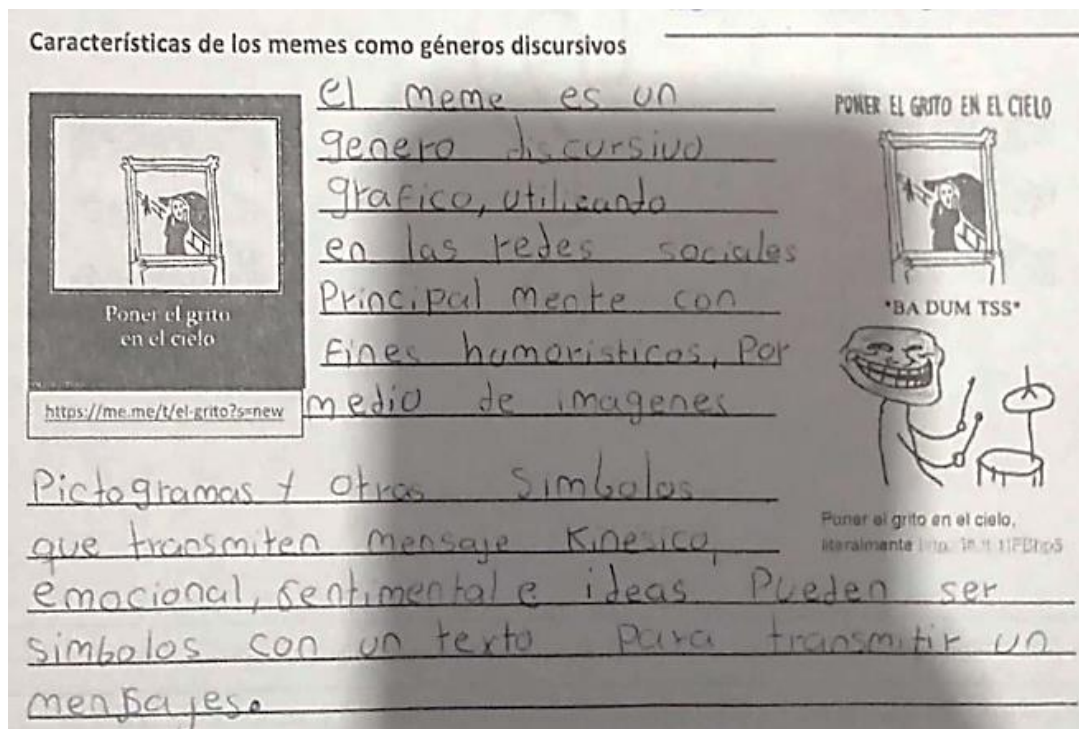 Características de los memes como géneros discursivos
Poner el grito
en el cielo
https://me.me/t/el-grito?s=new
El meme es un
genero discursivo
grafico, utilizando
en las redes sociales
Principal mente con
fines humoristicos, Por
medio de imagenes
Pictogramas y otros simbolos
que transmiten mensaje Kinesico,
emocional, sentimental e ideas Pueden ser
simbolos con un texto para transmitir un
mensajes.
PONER EL GRITO EN EL CIELO
*BA DUM TSS*
Poner el grito en el cielo,
literalmente